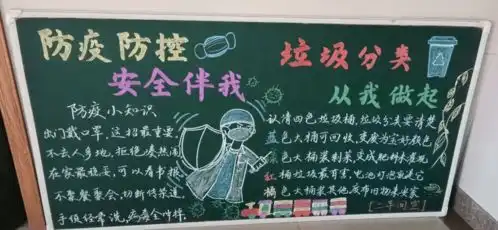 防疫防控
安全伴我
防疫小知识
出门戴口罩,这招最重要
不去人多地,拒绝凑热闹
在家最稳妥,可以看书报
不要聚餐会,切断传染道
手须经常洗,病毒全作掉
垃圾分类
从我做起
认清四色垃圾桶,垃圾分类要清楚
蓝色大桶可回收,变废为宝好颜色
绿色大桶装剩菜,变成肥料来营
红 桶垃圾最有害,电池灯泡
橘色大桶装其他,废布旧物是
[一年四